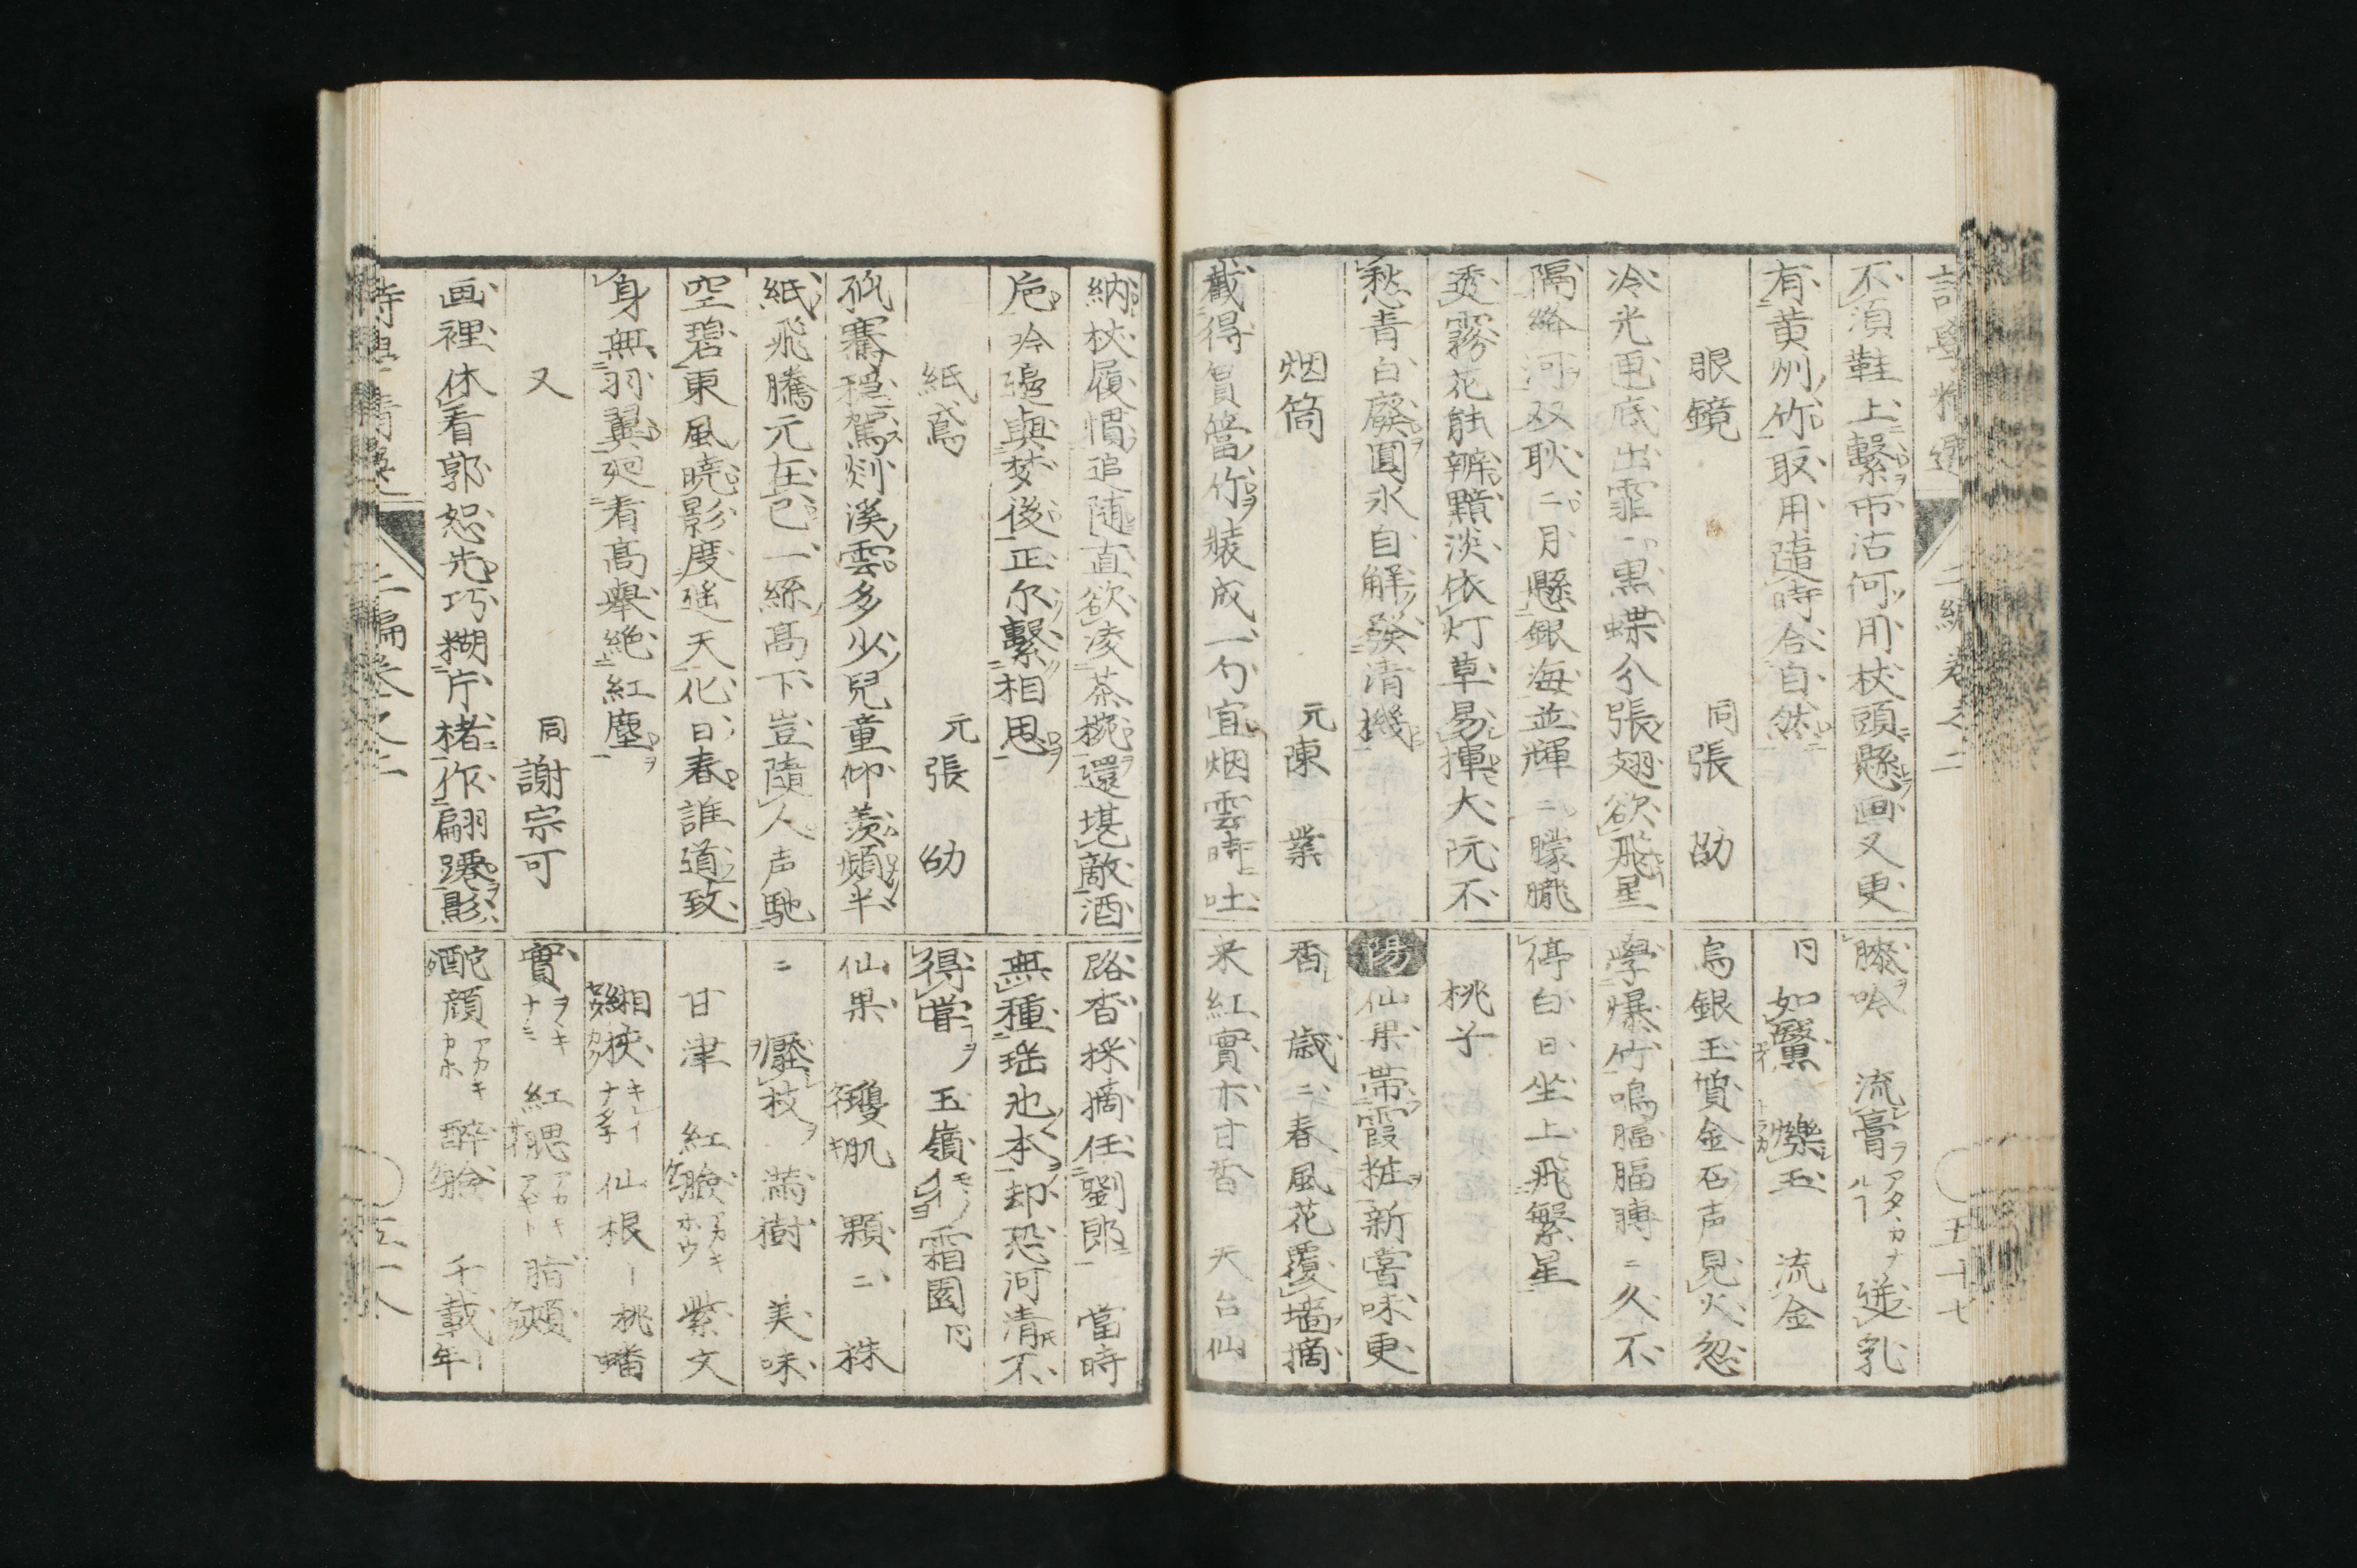 不須鞋上繋市沽何用杖頭懸画又更
有黄州竹取用随時合自然
眼鏡　同張　劭
冷光透底出霏ニ黒蝶分張翅欲飛星
隔絳河双耿ニ月懸銀海並輝ニ朦朧
透霧花能辨黯淡依灯草易揮大阮不
愁青白癈圓氷自解發清機
烟筒　元陳　業
截得貟簹竹裝成一勺宜烟雲時吐
膝吟　流膏　迸乳
円　如鷖　爍玉　流金
烏銀玉質金石声見火忽
學爆竹鳴腷腷膊ニ久不
停白日日坐上飛繁星
桃子
陽　仙果帯霞粧新嘗味更
香　歳ニ春風花覆墻摘
来紅實亦甘香　天台仙
納杖履慣追随直欲凌茶椀還堪敵酒
巵吟邉與梦後正尔繋相思
紙鳶　元張　劭
孤騫穏駕剡溪雲多少兒童仰羨頻半
紙飛騰元在已一絲高下豈隨人声馳
空碧東風曉影度遥天化日春誰道致
身無羽翼廻看高舉絶紅塵
又　同謝宗可
画裡休看郭恕先巧糊片楮作翩躚影
路杳採摘任劉郎　當時
無種瑶池本却恐河清不
得嘗　玉嶺　霜園円
仙果　瓊肌　顆ニ　株
ニ　壓枝　滿樹　美味
甘津　紅臉　紫文
緗挾　仙根　桃蟠
實　紅腮　脂頰
酡顔　醉臉　千載年
詩學精選　二編巻之二　五十七